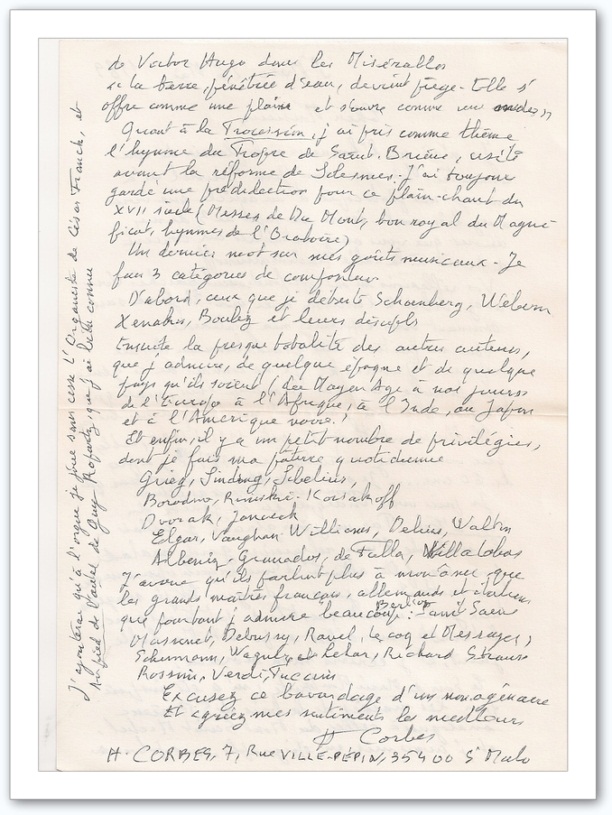 de Victor Hugo dans les Misérables
"la terre, pénétrée d'eau, devient piège. Elle s'
offre comme une plaine et s'ouvre comme une onde"
Quant à la Procession, j'ai pris comme thème
l'hymne du Propre de Saint. Brieuc, usité
avant la réforme de Solesmes. J'ai toujours
gardé une prédilection pour ce plain-chant du
XVII siècle (Messes de Du Mont, ton royal du Magni-
ficat, hymnes de l'Oratoire)
Un dernier mot sur mes goûts musicaux. Je
fais 3 catégories de compositeurs
D'abord, ceux que je déteste Schoenberg, Webern
Xenakis, Boulez et leurs disciples
Ensuite la presque totalité des autres auteurs,
que j'admire, de quelque époque et de quelque
pays qu'ils soient (du Moyen Age à nos jours
de l'Europe à l'Afrique, à l'Inde, au Japon
et à l'Amérique noire.)
Et enfin, il y a un petit nombre de privilégiés,
dont je fais ma pâture quotidienne
Grieg, Sinding, Sibelius,
Borodine, Rimski-Korsakoff
Dvorak, Janacek
Elgar, Vaughan-Williams, Delius, Walton
Albeniz, Granados, de Falla, Villalobos
J'avoue qu'ils parlent plus à mon âme que
les grands maîtres français, allemands et italiens
que pourtant j'admire beaucoup: Berlioz Saint Saëns
Massenet, Debussy, Ravel, Lecoq et Messager,
Schumann, Wagner, et Lehar, Richard Strauss
Rossini, Verdi, Puccini
Excusez ce bavardage d'un nonagénaire
Et agréez mes sentiments les meilleurs
H Corbes
H. CORBES, 7, Rue VILLE-PÉPIN, 35400 St Malo
J'ajouterai qu'à l'orgue je joue sans cesse l'Organiste de César Franck, et
de Guy Ropartz, que j'ai bien connu